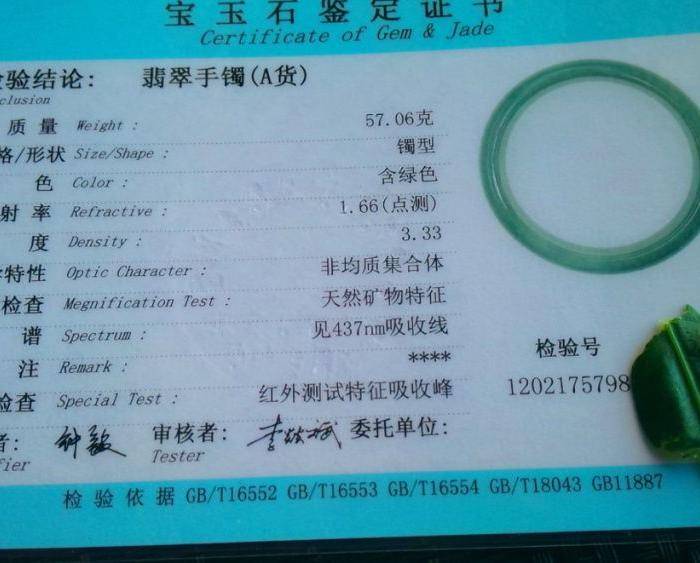 宝玉石鉴定证书
Certificate of Gem & Jade
验结论: 翡翠手镯(A货)
clusion
质量 Weight : 57.06克
格/形状 Size/Shape : 镯型
色 Color : 含绿色
射率 Refractive : 1.66(点测)
度 Density : 3.33
特性 Optic Character : 非均质集合体
检查 Megnification Test : 天然矿物特征
谱 Spectrum : 见437nm吸收线
注 Remark : ****
检查 Special Test : 红外测试特征吸收峰
检验号
1202175798
者: 审核者: 委托单位:
fier Tester
检验依据 GB/T16552 GB/T16553 GB/T16554 GB/T18043 GB11887